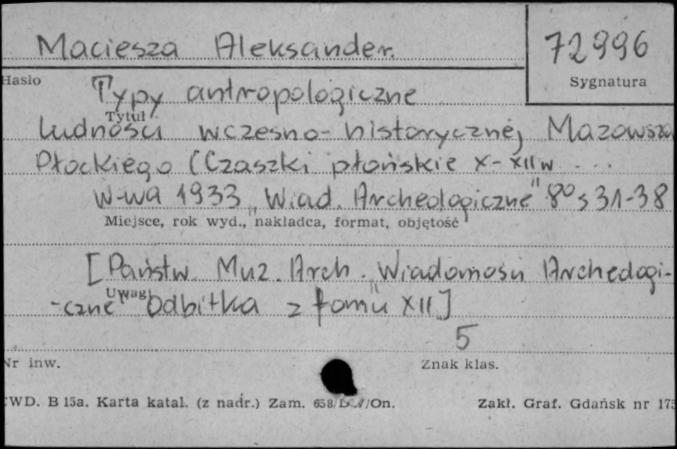 Maciesza Aleksander.
72996
Hasło
Sygnatura
Typy antropologiczne
Tytuł
ludności wczesno-historycznej Mazowsza
Płockiego (Czaszki płońskie X-XII w ...
W-wa 1933 „Wiad. Archeologiczne" 8° s 31-38
Miejsce, rok wyd., nakładca, format, objętość
[Państw. Muz. Arch. „Wiadomości Archeologi-
Uwagi
-czne" Odbitka z tomu XII]
5
Nr inw.
Znak klas.
WD. B 15a. Karta katal. (z nadr.) Zam. /On.
Zakł. Graf. Gdańsk nr 175